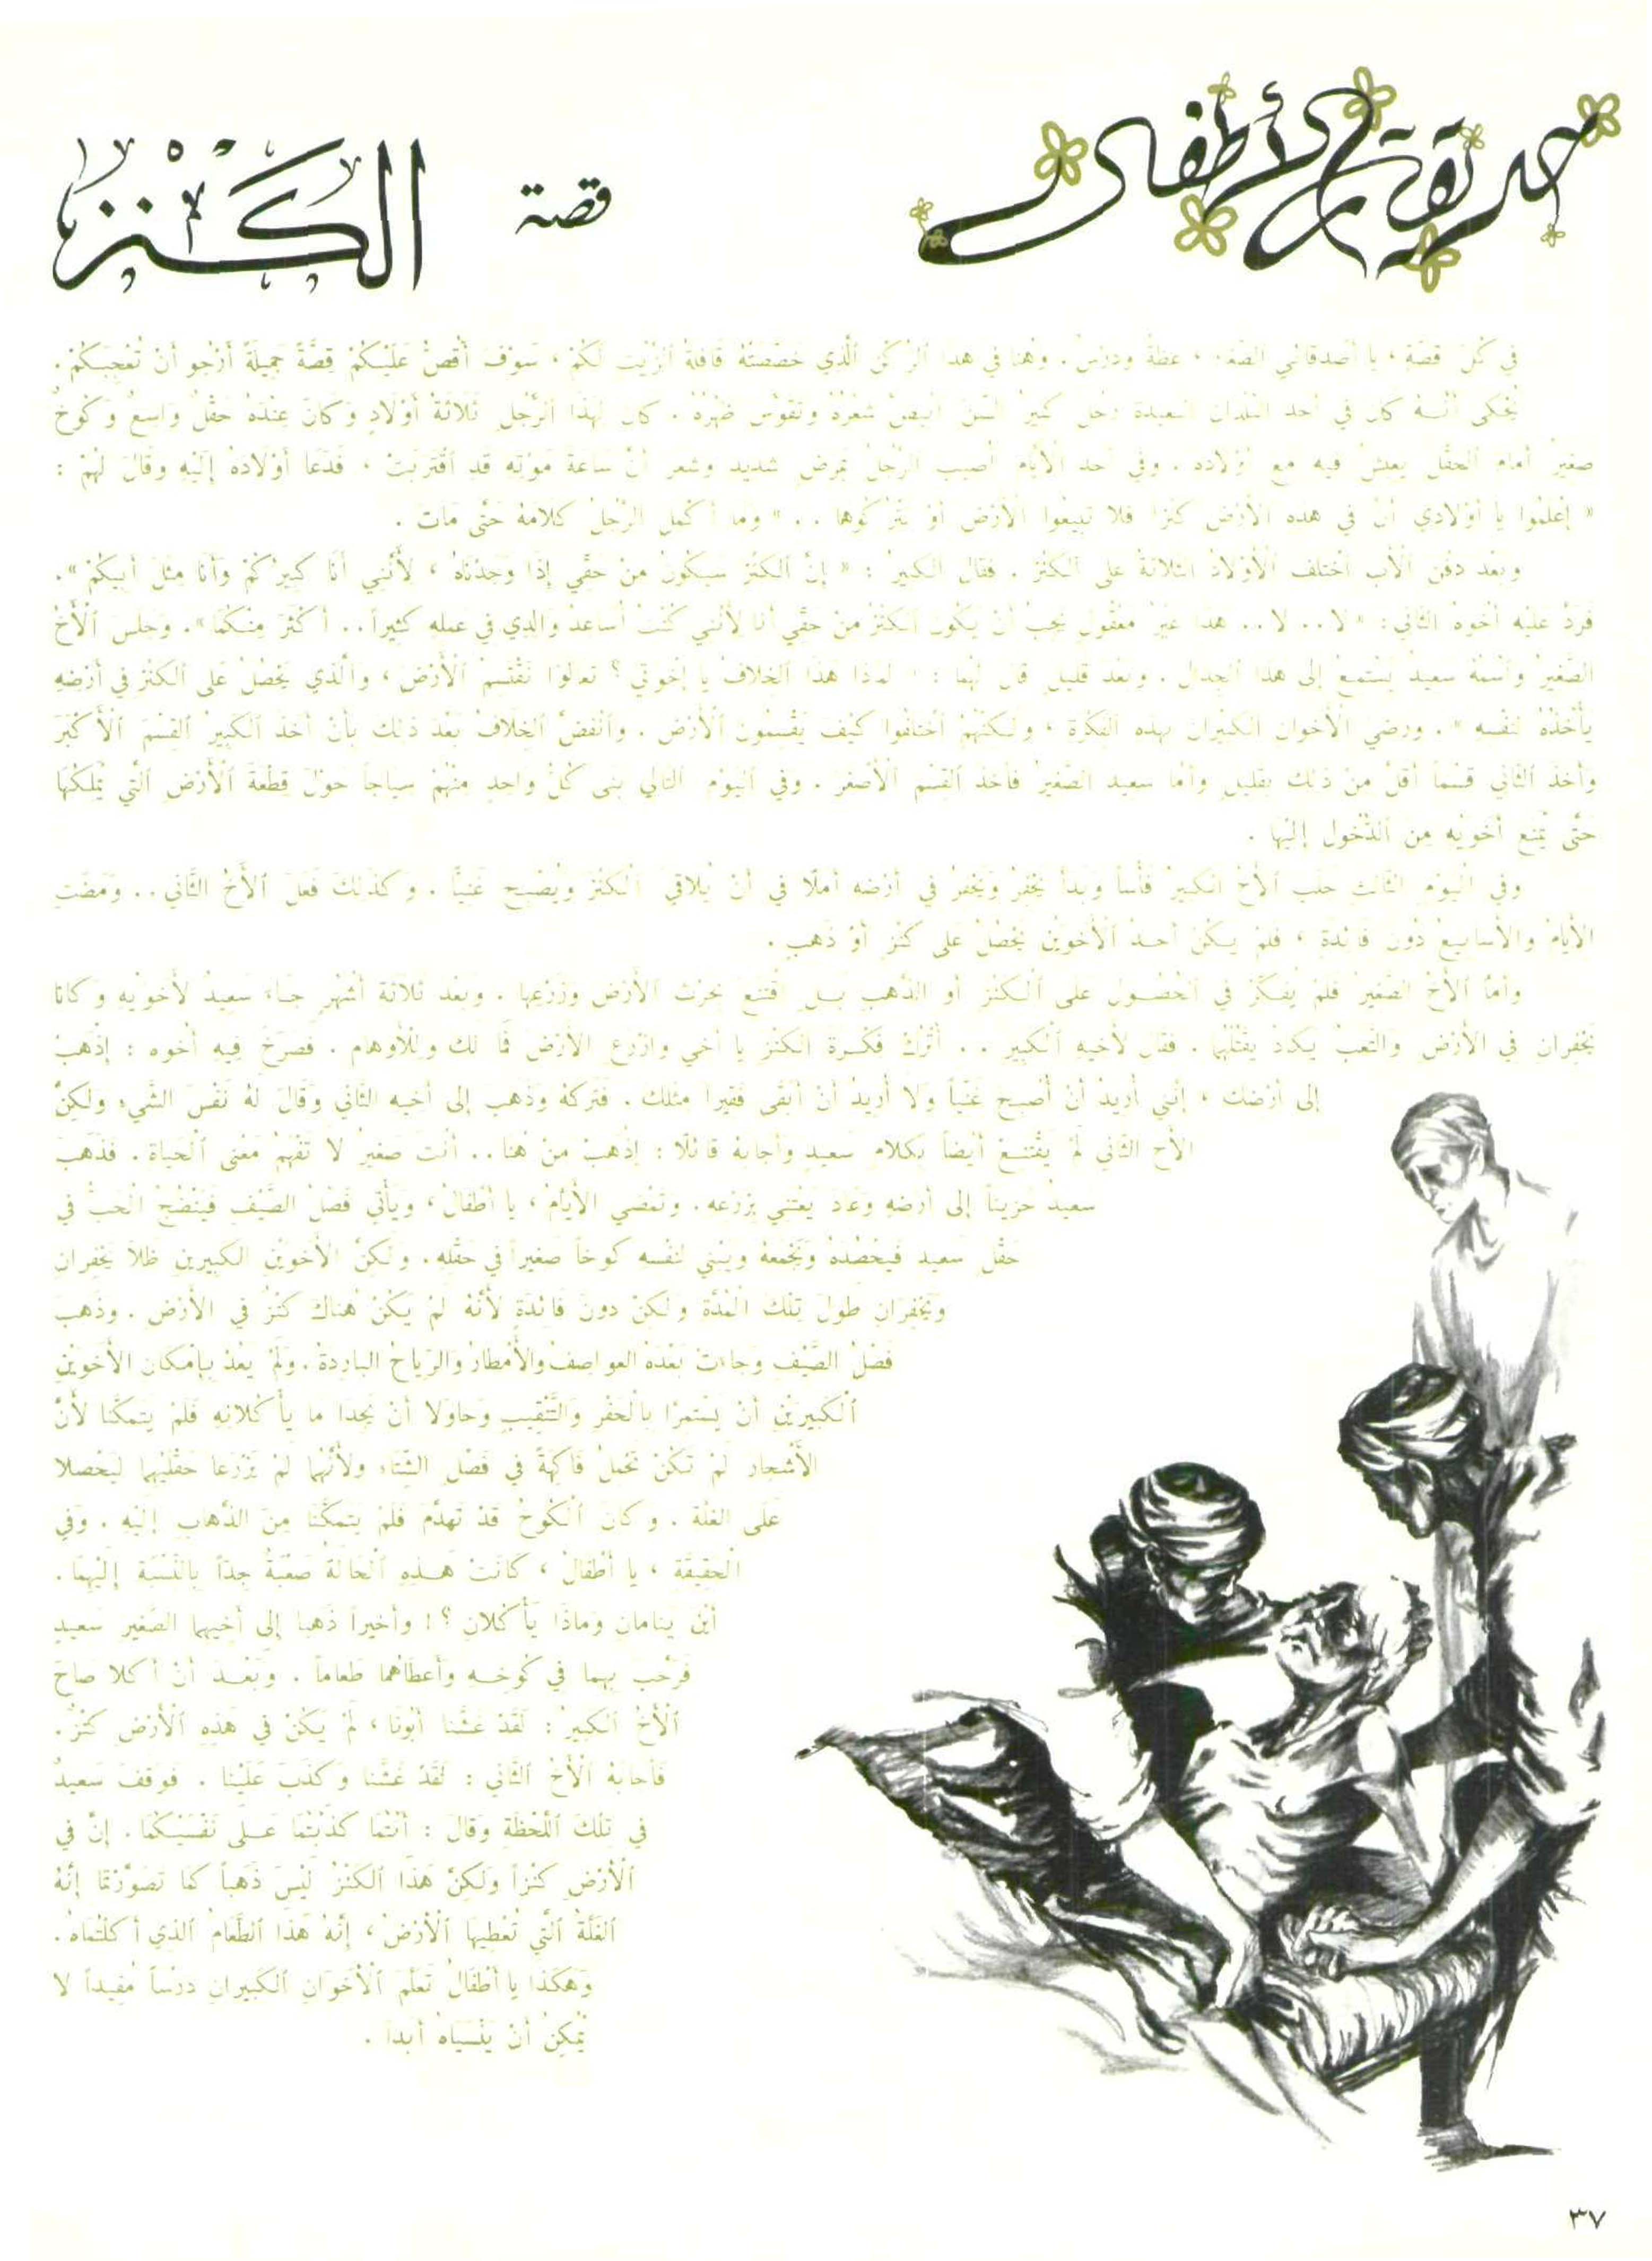 حديقة الأطفال
قصة
الكَنْز
في كل قصة ، يا أصدقائي الصغار ، عظة ودرس . وهنا في هذا الركن الذي خصصته قافلة الزيت لكم ، سَوْفَ أَقصُّ عَلَيْكُمْ قِصَّةً جَمِيلَةً أَرْجو أَنْ تُعْجِبَكُمْ .
يُحكى أنه كان في أحد البلدان البعيدة رجل كبير السن ابيض شعره وتقوس ظهره . كان لهذا الرجل ثلاثة أولاد وكان عنده حقل واسع وكوخ
صغير أمام الحقل يعيش فيه مع أولاده . وفي أحد الأيام أصيب الرجل بمرض شديد وشعر أن ساعة موته قد اقتربت ، فدعا أولاده إليه وقال لهم :
« إعلموا يا أولادي أن في هذه الأرض كنزا فلا تبيعوا الأرض أو تتركوها .. » وما أكمل الرجل كلامه حتى مات .
وبعد دفن الأب اختلف الأولاد الثلاثة على الكنز . فقال الكبير : « إن الكنز سيكون من حقي إذا وجدناه ، لأنني أنا كبيركم وأنا مثل أبيكم » .
فرد عليه أخوه الثاني : « لا .. لا .. هذا غير معقول يجب أن يكون الكنز من حقي أنا لأنني كنت أساعد والدي في عمله كثيراً .. أكثر منكما » . وجلس الأخ
الصغير واسمه سعيد يستمع إلى هذا الجدال . وبعد قليل قال لهما : « لماذا هذا الخلاف يا إخوتي ؟ تعالوا نقتسم الأرض ، والذي يحصل على الكنز في أرضه
يأخذه لنفسه » . ورضي الأخوان الكبيران بهذه الفكرة ، ولكنهم اختلفوا كيف يقسمون الأرض . وانفض الخلاف بعد ذلك بأن أخذ الكبير القسم الأكبر
وأخذ الثاني قسماً أقل من ذلك بقليل وأما سعيد الصغير فأخذ القسم الأصغر . وفي اليوم التالي بنى كل واحد منهم سياجاً حول قطعة الأرض التي يملكها
حتى يمنع أخويه من الدخول إليها .
وفي اليوم الثالث جلب الأخ الكبير فأساً وبدأ يحفر ويحفر في أرضه أملا في أن يلاقي الكنز ويصبح غنياً . وكذلك فعل الأخ الثاني .. ومضت
الأيام والأسابيع دون فائدة ، فلم يكن أحد الأخوين يحصل على كنز أو ذهب .
وأما الأخ الصغير فلم يفكر في الحصول على الكنز أو الذهب بل اقتنع بحرث الأرض وزرعها . وبعد ثلاثة أشهر جاء سعيد لأخويه وكانا
يحفران في الأرض والتعب يكاد يقتلهما . فقال لأخيه الكبير .. أترك فكرة الكنز يا أخي وازرع الأرض فما لك وللأوهام . فصرخ فيه أخوه : إذهب
إلى أرضك ، إنني أريد أن أصبح غنياً ولا أريد أن أبقى فقيراً مثلك . فتركه وذهب إلى أخيه الثاني وقال له نفس الشيء ولكن
الأخ الثاني لم يقتنع أيضاً بكلام سعيد وأجابه قائلا : إذهب من هنا .. أنت صغير لا تفهم معنى الحياة . فذهب
سعيد حزيناً إلى أرضه وعاد يعتني بزرعه . وتمضي الأيام ، يا أطفال ، ويأتي فصل الصيف فينضج الحب في
حقل سعيد فيحصده ويجمعه ويبني لنفسه كوخاً صغيراً في حقله . ولكن الأخوين الكبيرين ظلا يحفران
ويحفران طول تلك المدة ولكن دون فائدة لأنه لم يكن هناك كنز في الأرض . وذهب
فصل الصيف وجاءت بعده العواصف والأمطار والرياح الباردة . ولم يعد بإمكان الأخوين
الكبيرين أن يستمرا بالحفر والتنقيب وحاولا أن يجدا ما يأكلانه فلم يتمكنا لأن
الأشجار لم تكن تحمل فاكهة في فصل الشتاء ولأنهما لم يزرعا حقليهما ليحصلا
على الغلة . وكان الكوخ قد تهدم فلم يتمكنا من الذهاب إليه . وفي
الحقيقة ، يا أطفال ، كانت هذه الحالة صعبة جداً بالنسبة إليهما .
أين ينامان وماذا يأكلان ؟ ! وأخيراً ذهبا إلى أخيهما الصغير سعيد
فرحب بهما في كوخه وأعطاهما طعاماً . وبعد أن أكلا صاح
الأخ الكبير : لقد غشنا أبونا ، لم يكن في هذه الأرض كنز .
فأجابه الأخ الثاني : لقد غشنا وكذب علينا . فوقف سعيد
في تلك اللحظة وقال : أنتما كذبتما على نفسيكما . إن في
الأرض كنزاً ولكن هذا الكنز ليس ذهباً كما تصورتما إنه
الغلة التي تعطيها الأرض ، إنه هذا الطعام الذي أكلتماه .
وهكذا يا أطفال تعلم الأخوان الكبيران درساً مفيداً لا
يمكن أن ينسياه أبدا .
٣٧